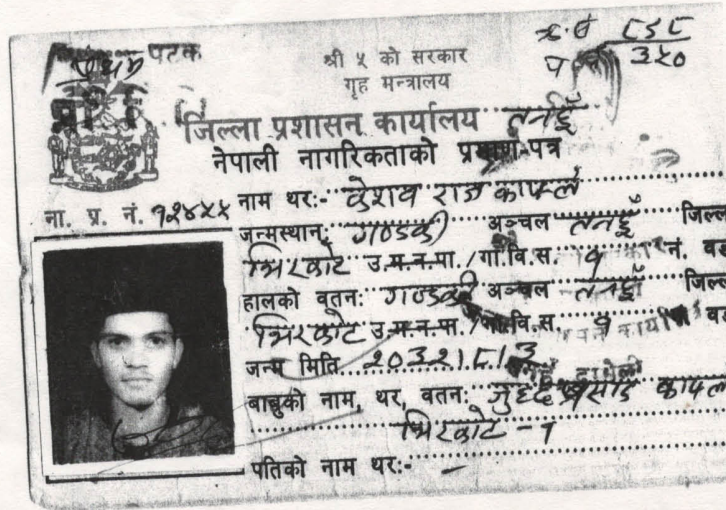 पटक
श्री ५ को सरकार
गृह मन्त्रालय
३५०
जिल्ला प्रशासन कार्यालय तनहुँ
नेपाली नागरिकताको प्रमाण-पत्र
ना. प्र. नं. १२४५५
नाम थर:- केशव राज काफ्ले
जन्मस्थान: गण्डकी अञ्चल तनहुँ जिल्ल
भिरकोट उ.म.न.पा./गा.वि.स. १ नं. वड
हालको वतन: गण्डकी अञ्चल तनहुँ जिल्ल
भिरकोट उ.म.न.पा./गा.वि.स. १ वड
जन्म मिति २०३२।८।३
बाबुको नाम, थर, वतन: प्रसाद काफ्ले
भिरकोट - १
पतिको नाम थर:- -